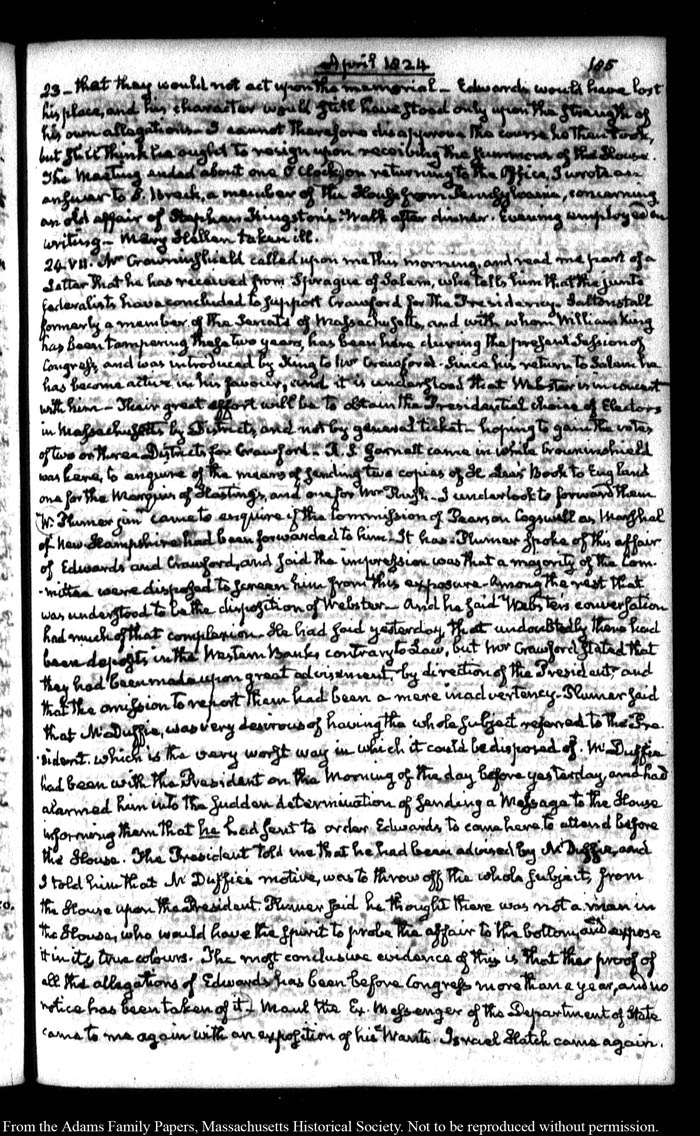 April 1824 105
23 – that they would not act upon the memorial – Edwards would have lost
his place, and his character would still have stood only upon the strength of
his own allegations – I cannot therefore disapprove the course he then took,
but still think he ought to resign upon receiving the summons of the House.
The Meeting ended about one O'Clock, on returning to the Office, I wrote an
answer to S. Breck, a member of the House from Pennsylvania, concerning
an old affair of Stephen Kingston's. Walk after dinner. Evening employed in
writing – Mary Hellen taken ill.
24. VII. Mr Crowninshield called upon me this morning, and read me part of a
Letter that he has received from Sprague of Salem, who tells him that the junto
federalists have concluded to support Crawford for the Presidency. Saltonstall
formerly a member of the Senate of Massachusetts, and with whom William King
has been tampering these two years, has been here during the present Session of
Congress, and was introduced by King to Mr Crawford. Since his return to Salem he
has become active in his favour, and it is understood that Webster is in concert
with him – Their great effort will be to obtain the Presidential choice of Electors
in Massachusetts by Districts, and not by general ticket – hoping to gain the votes
of two or three Districts for Crawford – R. S. Garnett came in while Crowninshield
was here, to enquire of the means of sending two copies of H. Lee's Book to England
one for the Marquis of Hastings, and one for Mr Rush. I undertook to forward them
W. Plumer junr came to enquire if the Commission of Pearson Cogswell as Marshal
of New Hampshire had been forwarded to him. It has. Plumer spoke of this affair
of Edwards and Crawford, and said the impression was that a majority of the Com-
-mittee were disposed to screen him from this exposure – Among the rest that
was understood to be the disposition of Webster – And he said Webster's conversation
had much of that complexion. He had said yesterday, that undoubtedly there had
been deposits in the Western Banks contrary to Law, but Mr Crawford stated that
they had been made upon great advisement, by direction of the President, and
that the omission to report them had been a mere inadvertency. Plumer said
that McDuffie, was very desirous of having the whole subject referred to the Pre-
-sident. which is the very worst way in which it could be disposed of. McDuffie
had been with the President on the Morning of the day before yesterday, and had
alarmed him into the sudden determination of sending a Message to the House
informing them that he had sent to order Edwards to come here, to attend before
the House. The President told me that he had been advised by McDuffie, and
I told him that McDuffie's motive, was to throw off the whole subject, from
the House upon the President. Plumer said he thought there was not a man in
the House, who would have the spirit to probe the affair to the bottom, and expose
it in its true colours. The most conclusive evidence of this is that the proof of
all the allegations of Edwards has been before Congress more than a year, and no
notice has been taken of it – Maul the Ex. Messenger of the Department of State
came to me again with an exposition of his Wants. Israel Hatch came again.
From the Adams Family Papers, Massachusetts Historical Society. Not to be reproduced without permission.